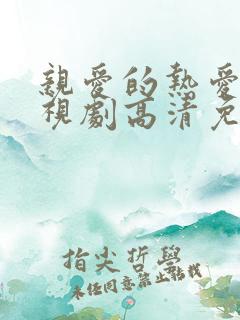 親愛的熱愛
視劇高清免
指尖哲學
未經同意禁止轉載